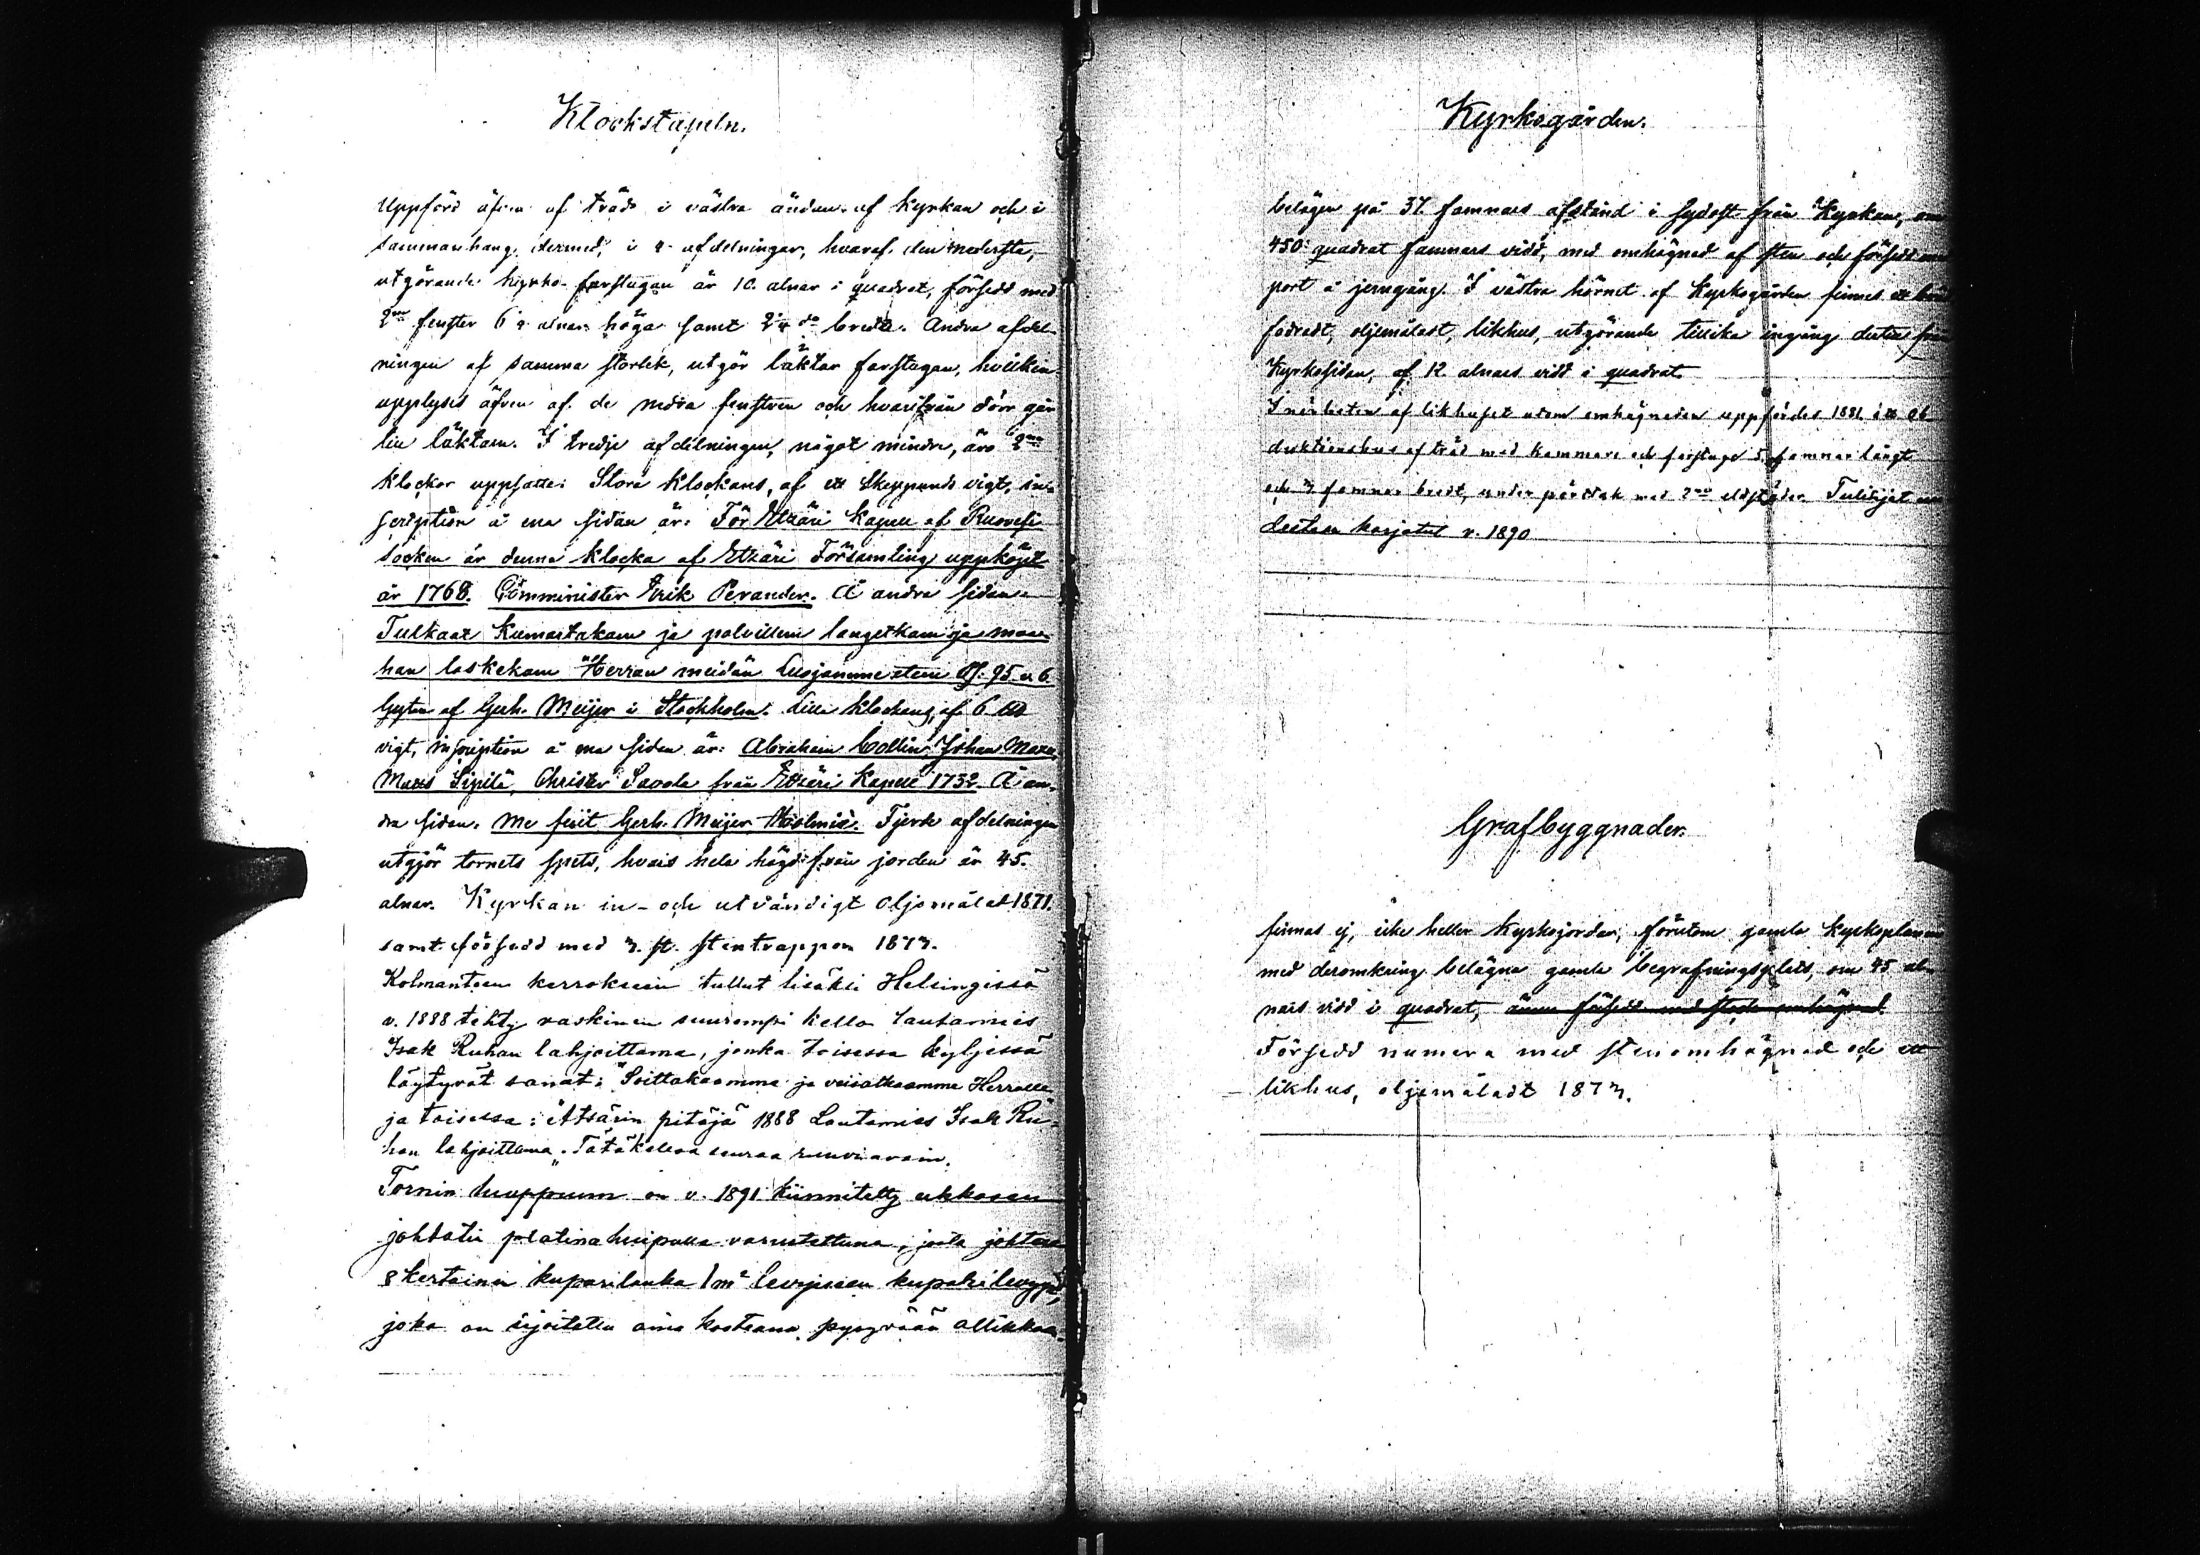 Klockstapeln.
Uppförd äfven af träd i västra ändan af Kyrkan och i
sammanhang dermed, i 4 afdelningar, hvaraf den nedersta,
utgörande kyrko-farstugan är 10. alnar i quadrat, försedd med
2ne fenster 6 alnar höga samt 2¼ do breda. Andra afdel-
ningen af samma storlek, utgör läktar farstugan, hvilken
upplyses äfven af de nedra fenstren och hvarifrån dörr går
till läktarn. I tredje afdelningen, något mindre, äro 2ne
klockor uppsatte: Stora Klockans, af ett Skeppunds vigt, in-
scription å ena sidan är: För Etzäri Kapell af Ruovesi
Socken är denna Klocka af Etzäri Församling uppköpt
år 1768. Comminister Erik Perander. Å andra sidan
Tulkaat Kumartakam ja polvillem langetkam ja maa-
han laskekam Herran meidän Luojamme eteen Ps. 95 v. 6.
Gjuten af Gerh. Meijer i Stockholm. Lilla Klockans, af 6 L℔
vigt, inscription å ena sidan är: Abraham Collin, Johan
Matts Sipilä, Christer Savola från Etzäri Kapell 1732. Å an-
dra sidan. Me fecit Gerh. Meijer Holmiæ. Fjerde afdelningen
utgjör tornets spets, hvars hela höjd från jorden är 45.
alnar. Kyrkan in- och utvändigt oljomålad 1871.
samt försedd med 3. st. stentrappor 1873.
Kolmanteen kerrokseen tullut lisäksi Helsingissä
v. 1888 tehty vaskinen suurempi kello lautamies
Isak Ruhan lahjoittama, jonka toisessa kyljessä
löytyvät sanat: "Soittakaamme ja veisatkaamme Herralle
ja toisessa: "Atsärin pitäjä 1888 Lautamies Isak Ru-
han lahjoittama". Tätä kelloa seuraa ruuviavain.
Tornin huippuun on v. 1891 kiinnitetty ukkosen
johdatin platinahuipulla varustettuna, josta johtaa
8 kertainen kuparilanka 1 m² levyiseen kuparilevyyn,
joka on sijoitettu aina kosteana pysyvään allikkoon.
Kyrkogården.
belägen på 37 famnars afstånd i sydost från Kyrkan, om
450 quadrat famnars vidd, med omhägnad af sten och försedd med
port å jerngång. I västra hörnet af Kyrkogården finnes ett
fodradt, oljemåladt, likhus, utgörande tillika ingång dertill från
Kyrkosidan, af 12 alnars vidd i quadrat.
I närheten af likhuset utom omhägnaden uppfördes 1881 ett ob-
duktionshus af träd med kammare och farstuga 5 famnar långt
och 3 famnar bredt, under pärttak med 2ne eldstäder. Tulisijat
korjatut v. 1890
Grafbyggnader.
finnas ej, icke heller Kyrkojordar, förutom gamla Kyrkoplanen
med deromkring belägna gamla begrafningsplats, om 45 al-
nars vidd i quadrat, ännu försedd med omhägnad.
Försedd numera med stenomhägnad och ett
likhus, oljemåladt 1873.